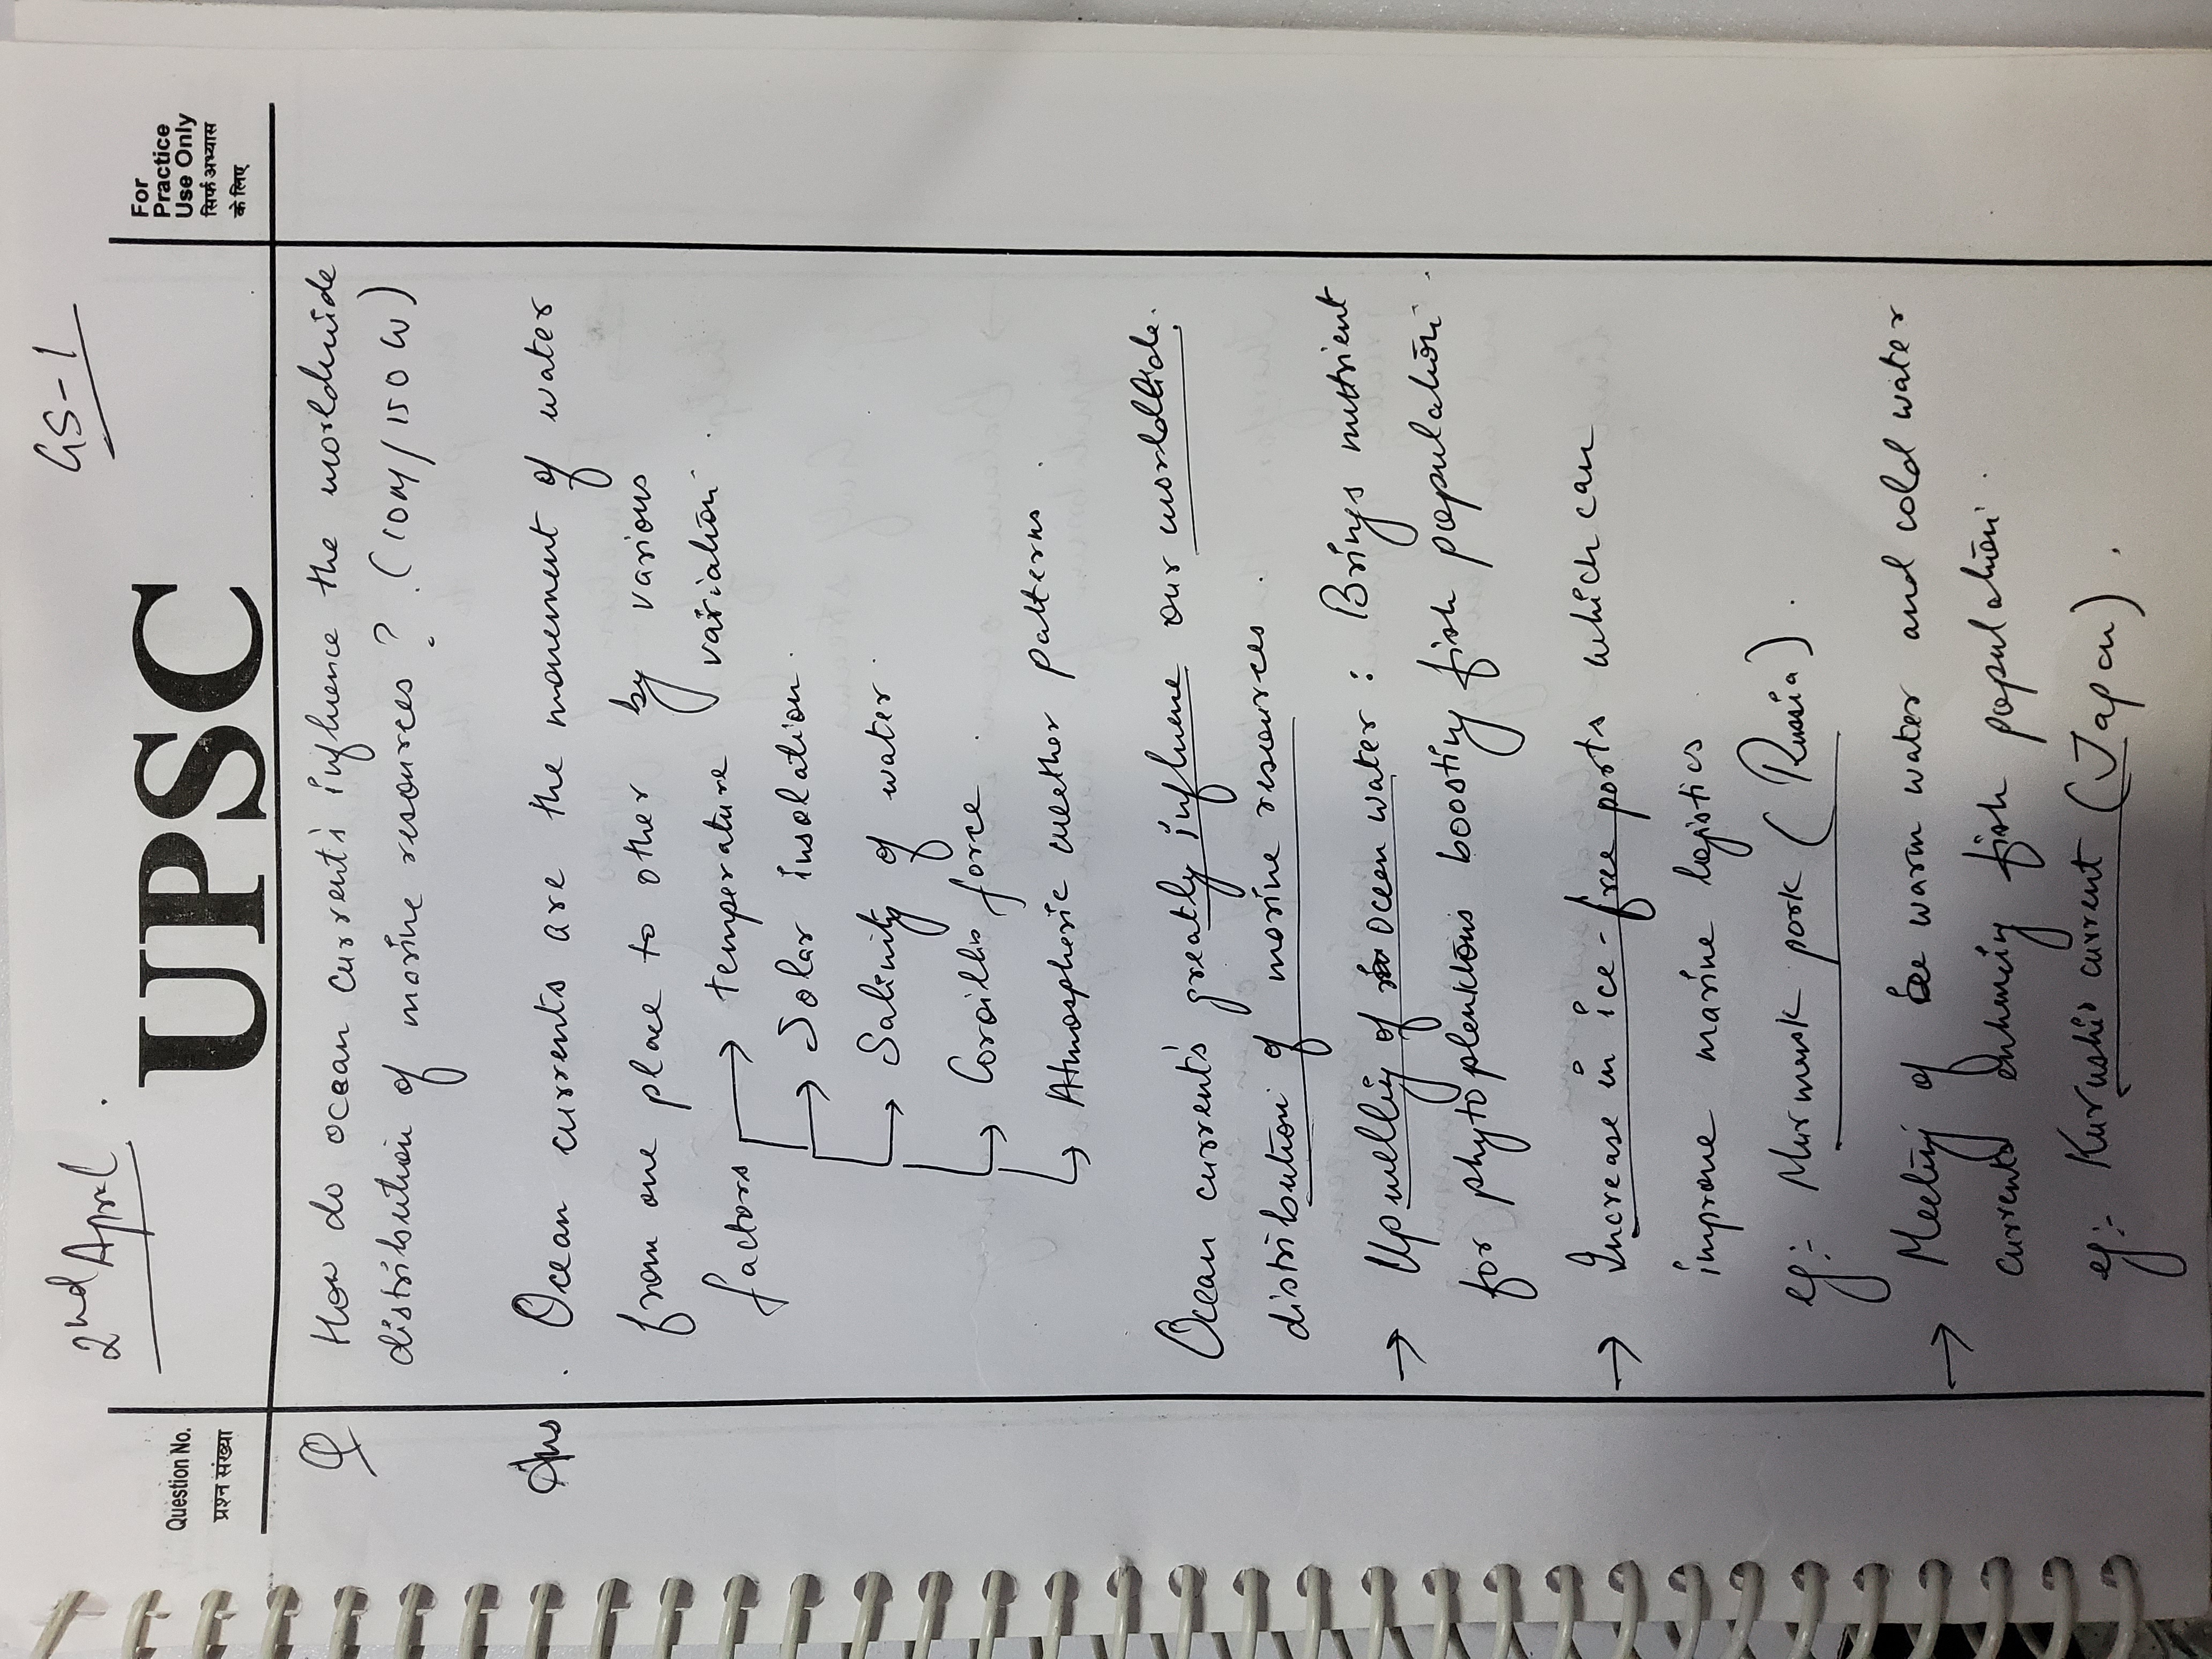 2nd April.
GS-1
Question No.
प्रश्न संख्या
UPSC
For
Practice
Use Only
सिर्फ अभ्यास
के लिए
Q How do ocean currents influence the worldwide
distribution of marine resources? (10M/150W)
Ans. Ocean currents are the movement of water
from one place to other by various
factors → temperature variation.
→ Solar insolation.
→ Salinity of water.
→ Coroilks force.
→ Atmospheric weether patterns.
Ocean currents greatly influene our worldtide.
distribution of marine resources.
→ Upwellig of ocen water: Brings nutrient
for phytoplenktons boosting fish population.
→ Increase in ice-free ports which can
improve marine logistics
eg:- Murmansk pork (Russia).
→ Meeting of warm water and cold water
currents enhancing fish population.
eg:- Kurushio current (Japan).